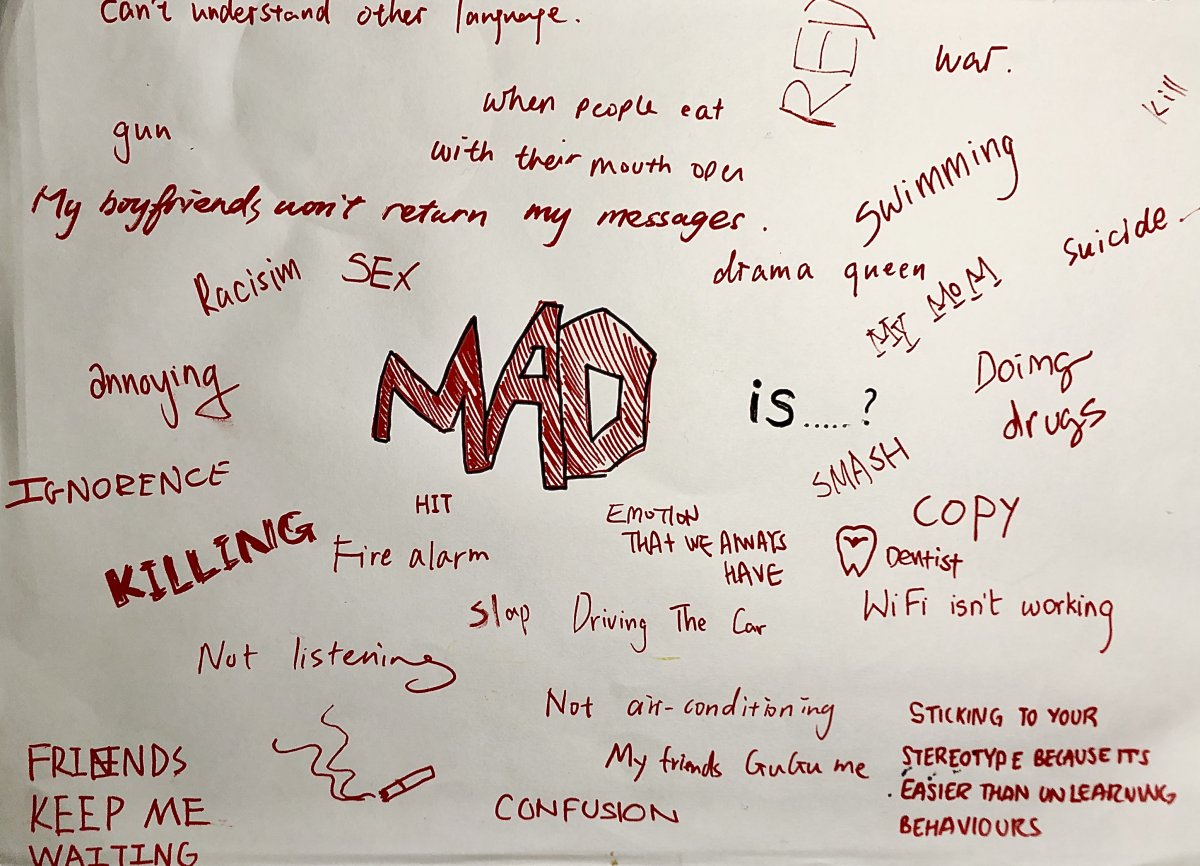 Can't understand other language.
RED
war.
Kill
when people eat
with their mouth open
gun
My boyfriends won't return my messages.
swimming
suicide
Racisim
SEX
drama queen
MY MOM
annoying
MAD
is.....?
Doing
drugs
SMASH
IGNORENCE
HIT
EMOTION
THAT WE ALWAYS
HAVE
COPY
KILLING
Fire alarm
Dentist
WiFi isn't working
Slap
Driving The Car
Not listening
Not air-conditioning
STICKING TO YOUR
STEREOTYPE BECAUSE ITS
EASIER THAN UNLEARNING
BEHAVIOURS
My friends GuGu me
FRIENDS
KEEP ME
WAITING
CONFUSION